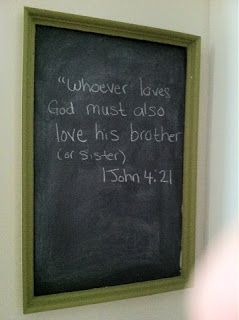 "Whoever loves
God must also
love his brother
(or sister)
1 John 4:21